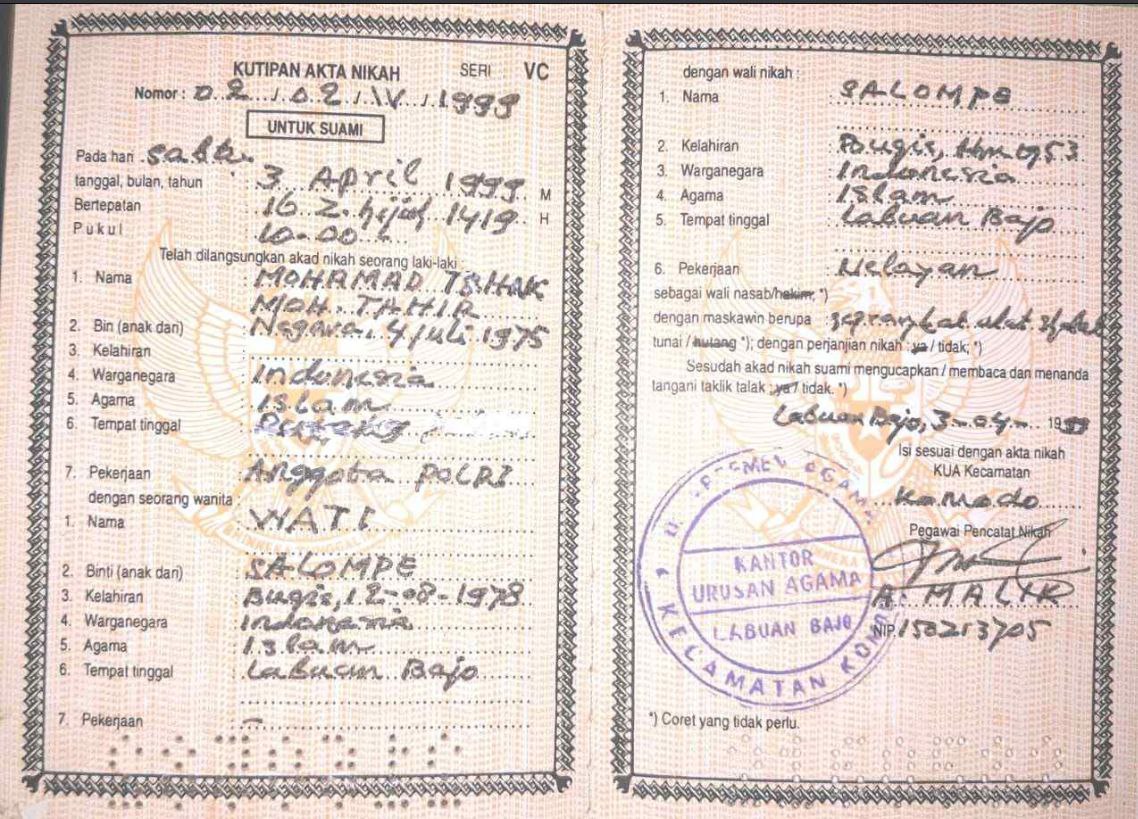 KUTIPAN AKTA NIKAH SERI VC
Nomor : 02 / 02 / IV / 1999
UNTUK SUAMI
Pada hari Sabtu
tanggal, bulan, tahun 3 April 1999 M
Bertepatan 16 Z. hijah 1419 H
Pukul 10-00
Telah dilangsungkan akad nikah seorang laki-laki :
1. Nama : MOHAMAD ISHAK
MOH. TAHIR
2. Bin (anak dari) : Nagara, 4 Juli 1975
3. Kelahiran :
4. Warganegara : Indonesia
5. Agama : Islam
6. Tempat tinggal :
7. Pekerjaan : Anggota POLRI
dengan seorang wanita :
1. Nama : WATI
2. Binti (anak dari) : SALOMPE
3. Kelahiran : Bugis, 12-08-1978
4. Warganegara : Indonesia
5. Agama : Islam
6. Tempat tinggal : Labuan Bajo
7. Pekerjaan : -
dengan wali nikah :
1. Nama : SALOMPE
2. Kelahiran : Bugis, thn 1953
3. Warganegara : Indonesia
4. Agama : Islam
5. Tempat tinggal : Labuan Bajo
6. Pekerjaan : Nelayan
sebagai wali nasab/hakim; *)
dengan maskawin berupa : seprangkat alat
tunai / hutang *); dengan perjanjian nikah : ya / tidak; *)
Sesudah akad nikah suami mengucapkan / membaca dan menanda
tangani taklik talak : ya / tidak. *)
Labuan Bajo, 3-04- 1999
Isi sesuai dengan akta nikah
KUA Kecamatan
Komodo
Pegawai Pencatat Nikah
A. MALIK
NIP. 150213705
KANTOR
URUSAN AGAMA
LABUAN BAJO
KECAMATAN KOMODO
*) Coret yang tidak perlu.